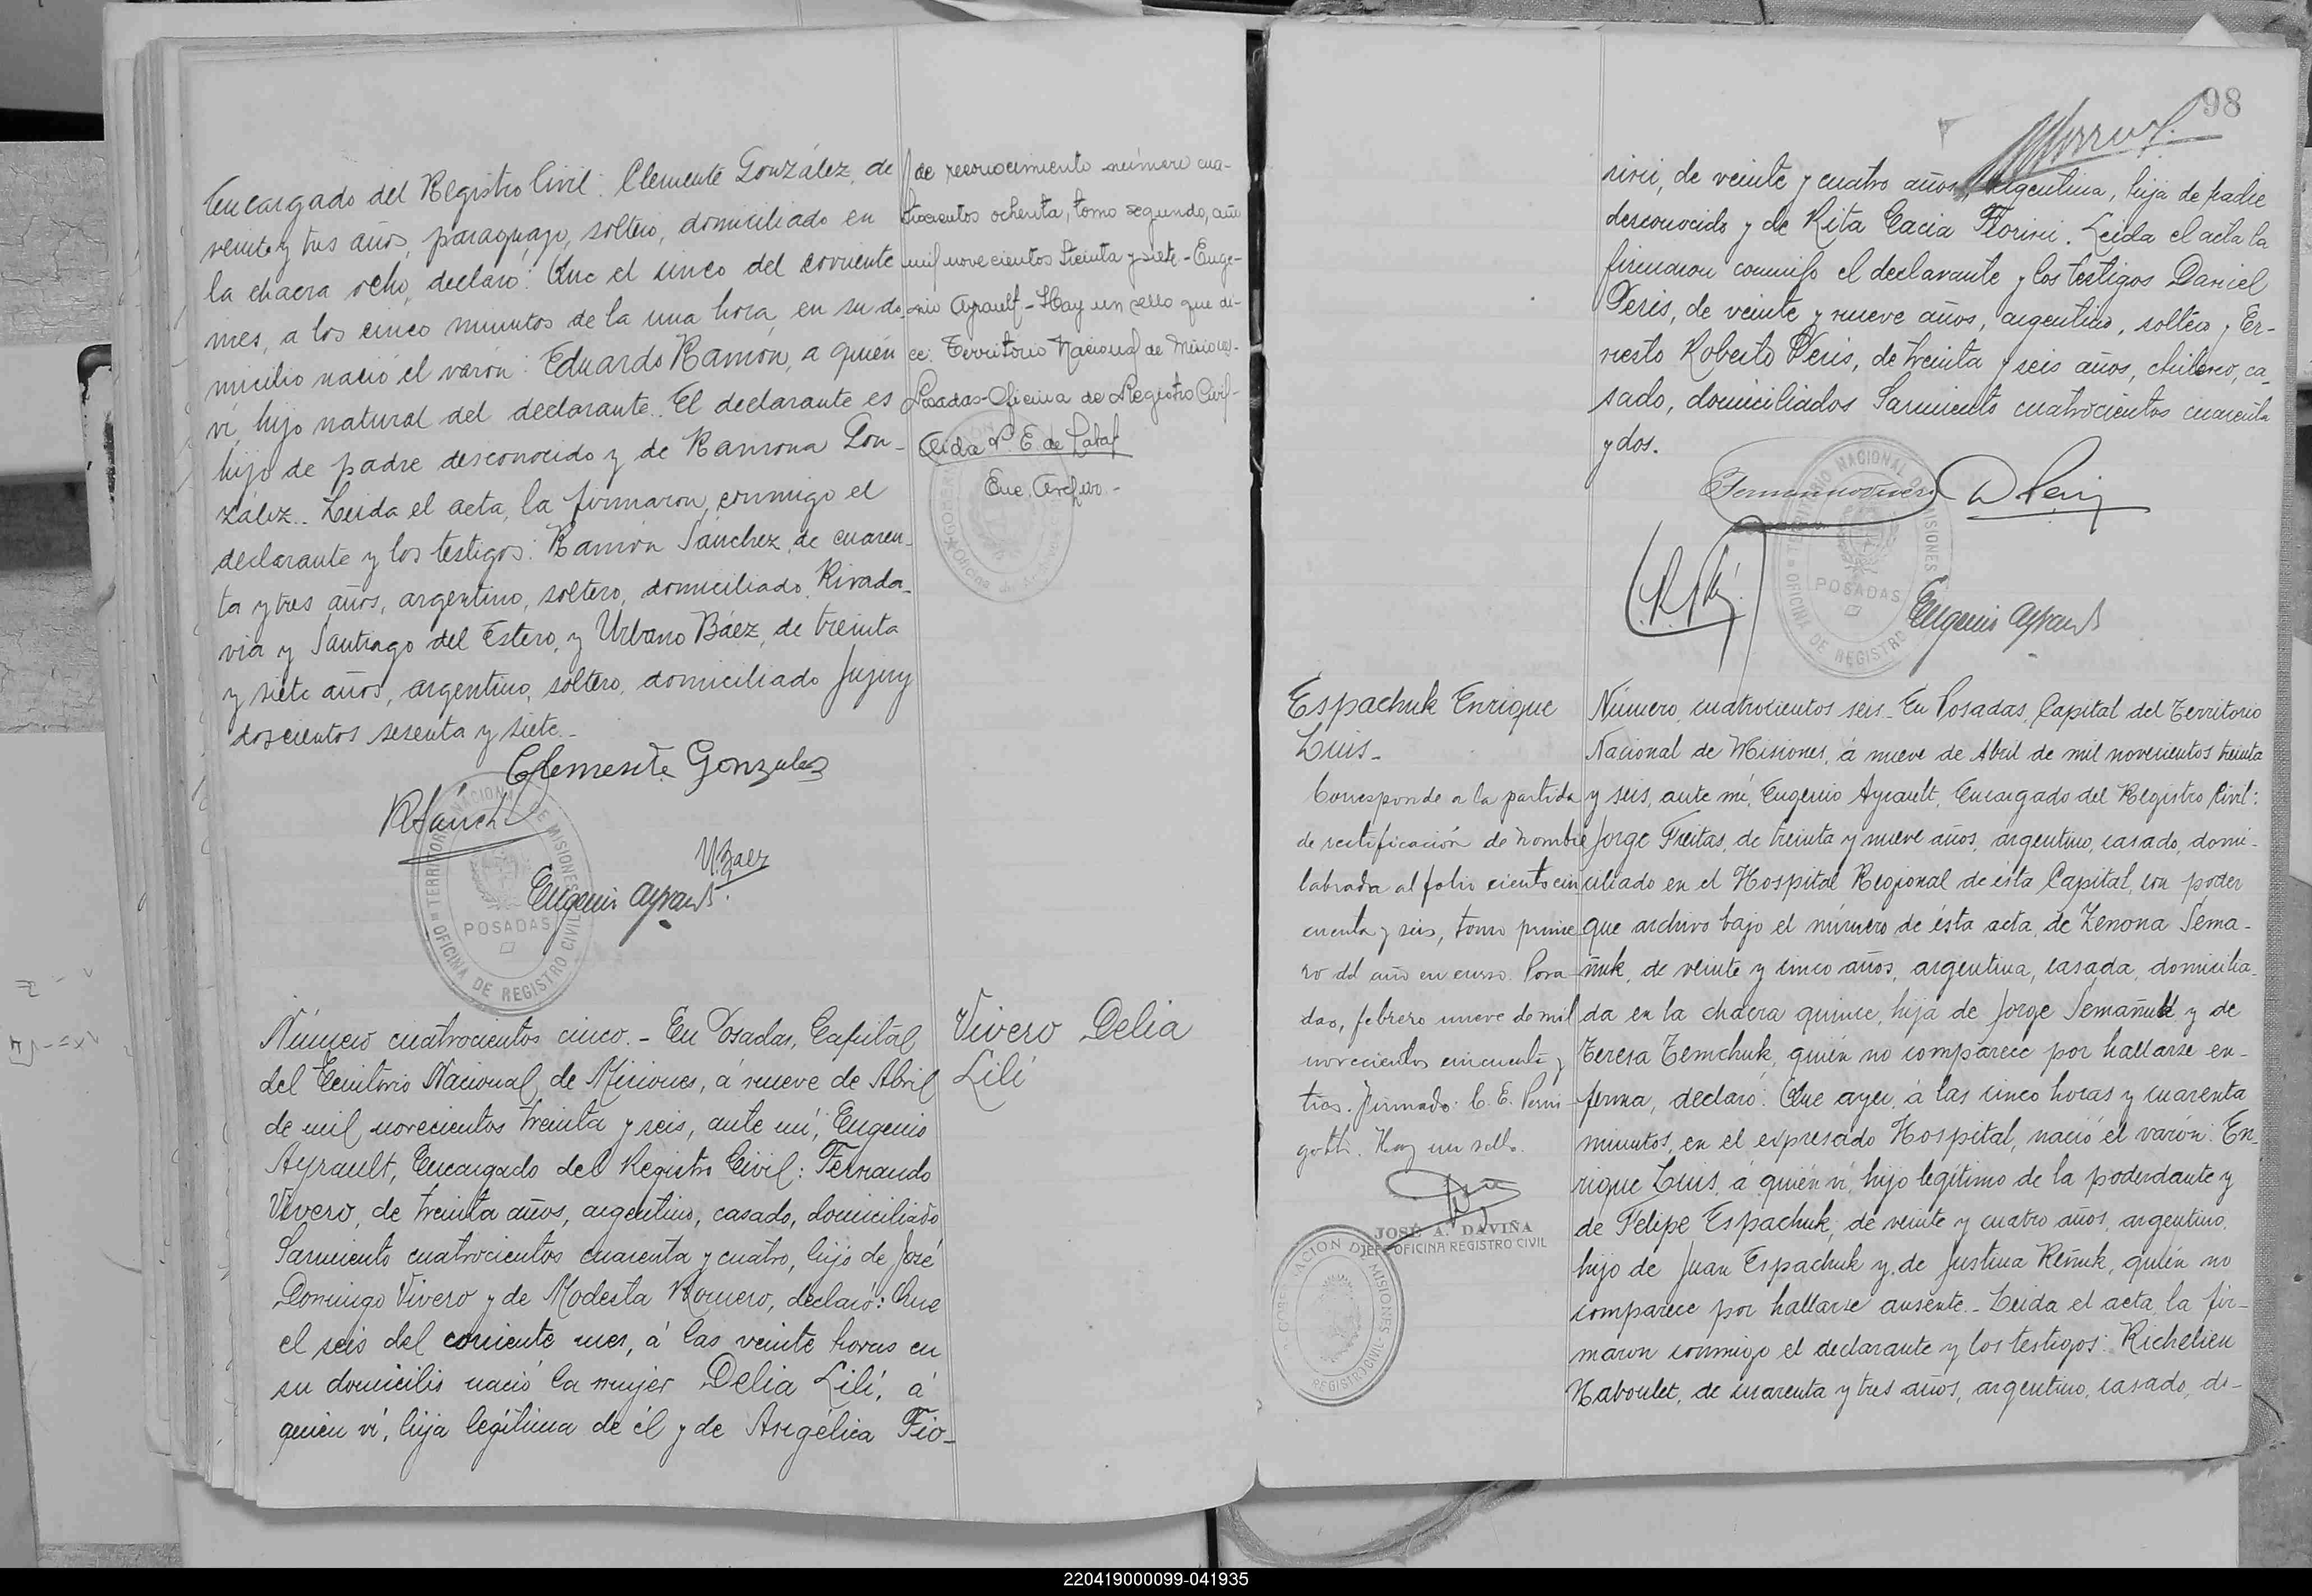 Encargado del Registro Civil: Clemente González, de
veinte y tres años, paraguayo, soltero, domiciliado en
la chacra ocho, declaró: Que el cinco del corriente
mes, a los cinco minutos de la una hora, en su do-
micilio nació el varón: Eduardo Ramón, a quién
ví, hijo natural del declarante. El declarante es
hijo de padre desconocido y de Ramona Gon-
zález. Leida el acta, la firmaron conmigo el
declarante y los testigos: Ramón Sánchez, de cuaren-
ta y tres años, argentino, soltero, domiciliado Rivada-
via y Santiago del Estero, y Urbano Báez, de treinta
y siete años, argentino, soltero, domiciliado Jujuy
doscientos sesenta y siete.-
Clemente Gonzalez
U. Baez
Eugenio Ayrault
TERRITORIO NACIONAL DE MISIONES
POSADAS
OFICINA DE REGISTRO CIVIL
de reconocimiento número cua-
trocientos ochenta, tomo segundo, año
mil novecientos treinta y siete - Euge-
nio Ayrault - Hay un sello que di-
ce: Territorio Nacional de Misiones-
Posadas-Oficina de Registro Civil-
Enc. Archivo.-
Número cuatrocientos cinco.- En Posadas, Capital
del Territorio Nacional de Misiones, á nueve de Abril
de mil novecientos treinta y seis, ante mí, Eugenio
Ayrault, Encargado del Registro Civil: Fernando
Vivero, de treinta años, argentino, casado, domiciliado
Sarmiento cuatrocientos cuarenta y cuatro, hijo de José
Domingo Vivero y de Modesta Romero, declaró: Que
el seis del corriente mes, á las veinte horas en
su domicilio nació la mujer Delia Lilí, á
quien ví, hija legítima de él y de Angélica Fio-
Vivero Delia
Lilí
98
rini, de veinte y cuatro años, argentina, hija de padre
desconocido y de Rita Gacia Fiorini. Leida el acta la
firmaron conmigo el declarante y los testigos Daniel
Peris, de veinte y nueve años, argentino, soltero, y Er-
nesto Roberto Peris, de treinta y seis años, chileno, ca-
sado, domiciliados Sarmiento cuatrocientos cuarenta
y dos.
D Peris
Eugenio Ayrault
TERRITORIO NACIONAL DE MISIONES
POSADAS
OFICINA DE REGISTRO
Espachuk Enrique
Luis-
Corresponde a la partida
de rectificación de nombre
labrada al folio ciento cin
cuenta y seis, tomo prime
ro del año en curso. Posa-
das, febrero nueve de mil
novecientos cincuenta y
tres. Firmado: C. E. Perni-
gotti. Hay un sello.
JOSÉ A. DAVIÑA
JEFE OFICINA REGISTRO CIVIL
GOBERNACION DE MISIONES
REGISTRO CIVIL
Número cuatrocientos seis- En Posadas, Capital del Territorio
Nacional de Misiones, á nueve de Abril de mil novecientos treinta
y seis, ante mí, Eugenio Ayrault, Encargado del Registro Civil:
Jorge Freitas, de treinta y nueve años, argentino, casado, domi-
ciliado en el Hospital Regional de ésta Capital, con poder
que archivo bajo el número de ésta acta, de Zenona Sema-
ñuk, de veinte y cinco años, argentina, casada, domicilia-
da en la chacra quince, hija de Jorge Semañuk y de
Teresa Temchuk, quién no comparece por hallarse en-
ferma, declaró: Que ayer, á las cinco horas y cuarenta
minutos, en el expresado Hospital, nació el varón: En-
rique Luis, á quién ví, hijo legítimo de la poderdante y
de Felipe Espachuk, de veinte y cuatro años, argentino,
hijo de Juan Espachuk y de Justina Reñuk, quién no
comparece por hallarse ausente.- Leida el acta, la fir-
maron conmigo el declarante y los testigos: Richelieu
Naboulet, de cuarenta y tres años, argentino, casado, do-
220419000099-041935